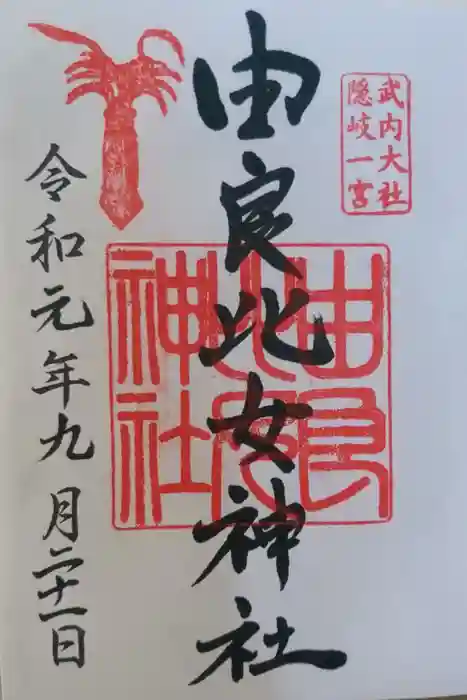 武内大社
隠岐一宮
由良比女神社
由良
比女
神社
令和元年九月二十一日